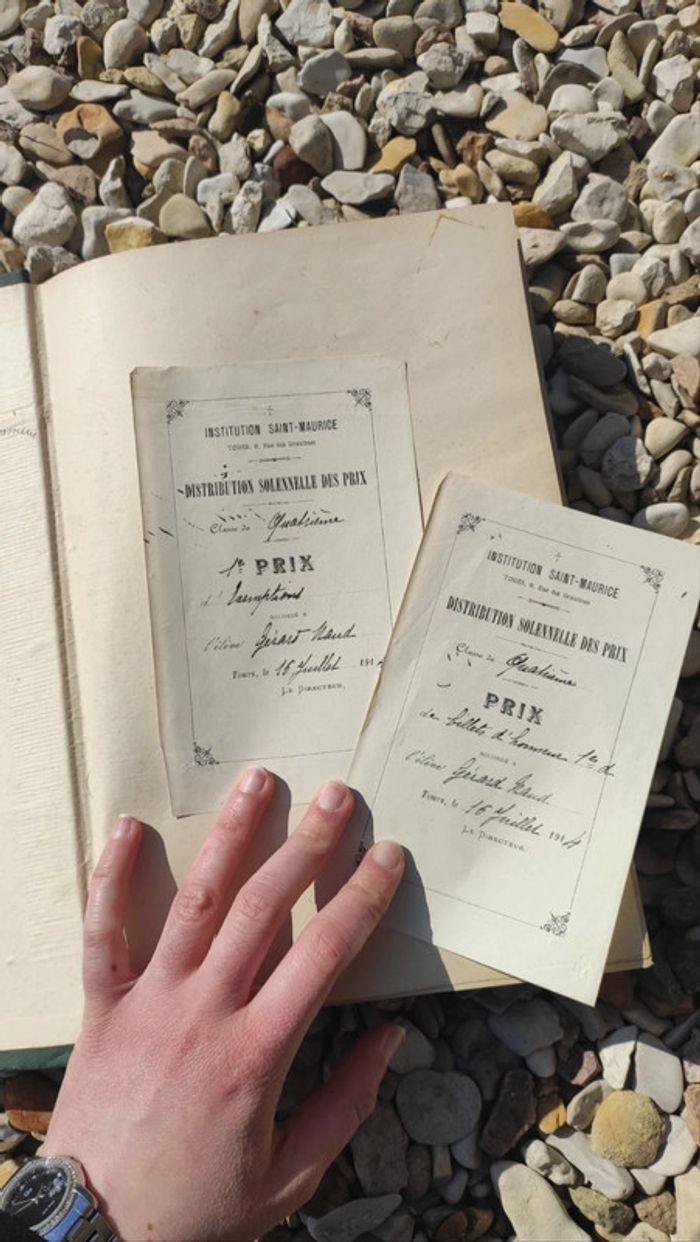 INSTITUTION SAINT-MAURICE
TOURS, 8, Rue des Ursulines
DISTRIBUTION SOLENNELLE DES PRIX
Classe de Quatrième
1er PRIX
d'Exemptions
ACCORDÉ A
l'élève Gérard
Tours, le 16 Juillet 191
LE DIRECTEUR,
INSTITUTION SAINT-MAURICE
TOURS, 8, Rue des Ursulines
DISTRIBUTION SOLENNELLE DES PRIX
Classe de Quatrième
PRIX
de billets d'honneur 1er d.
ACCORDÉ A
l'élève Gérard
Tours, le 16 Juillet 1914
LE DIRECTEUR,